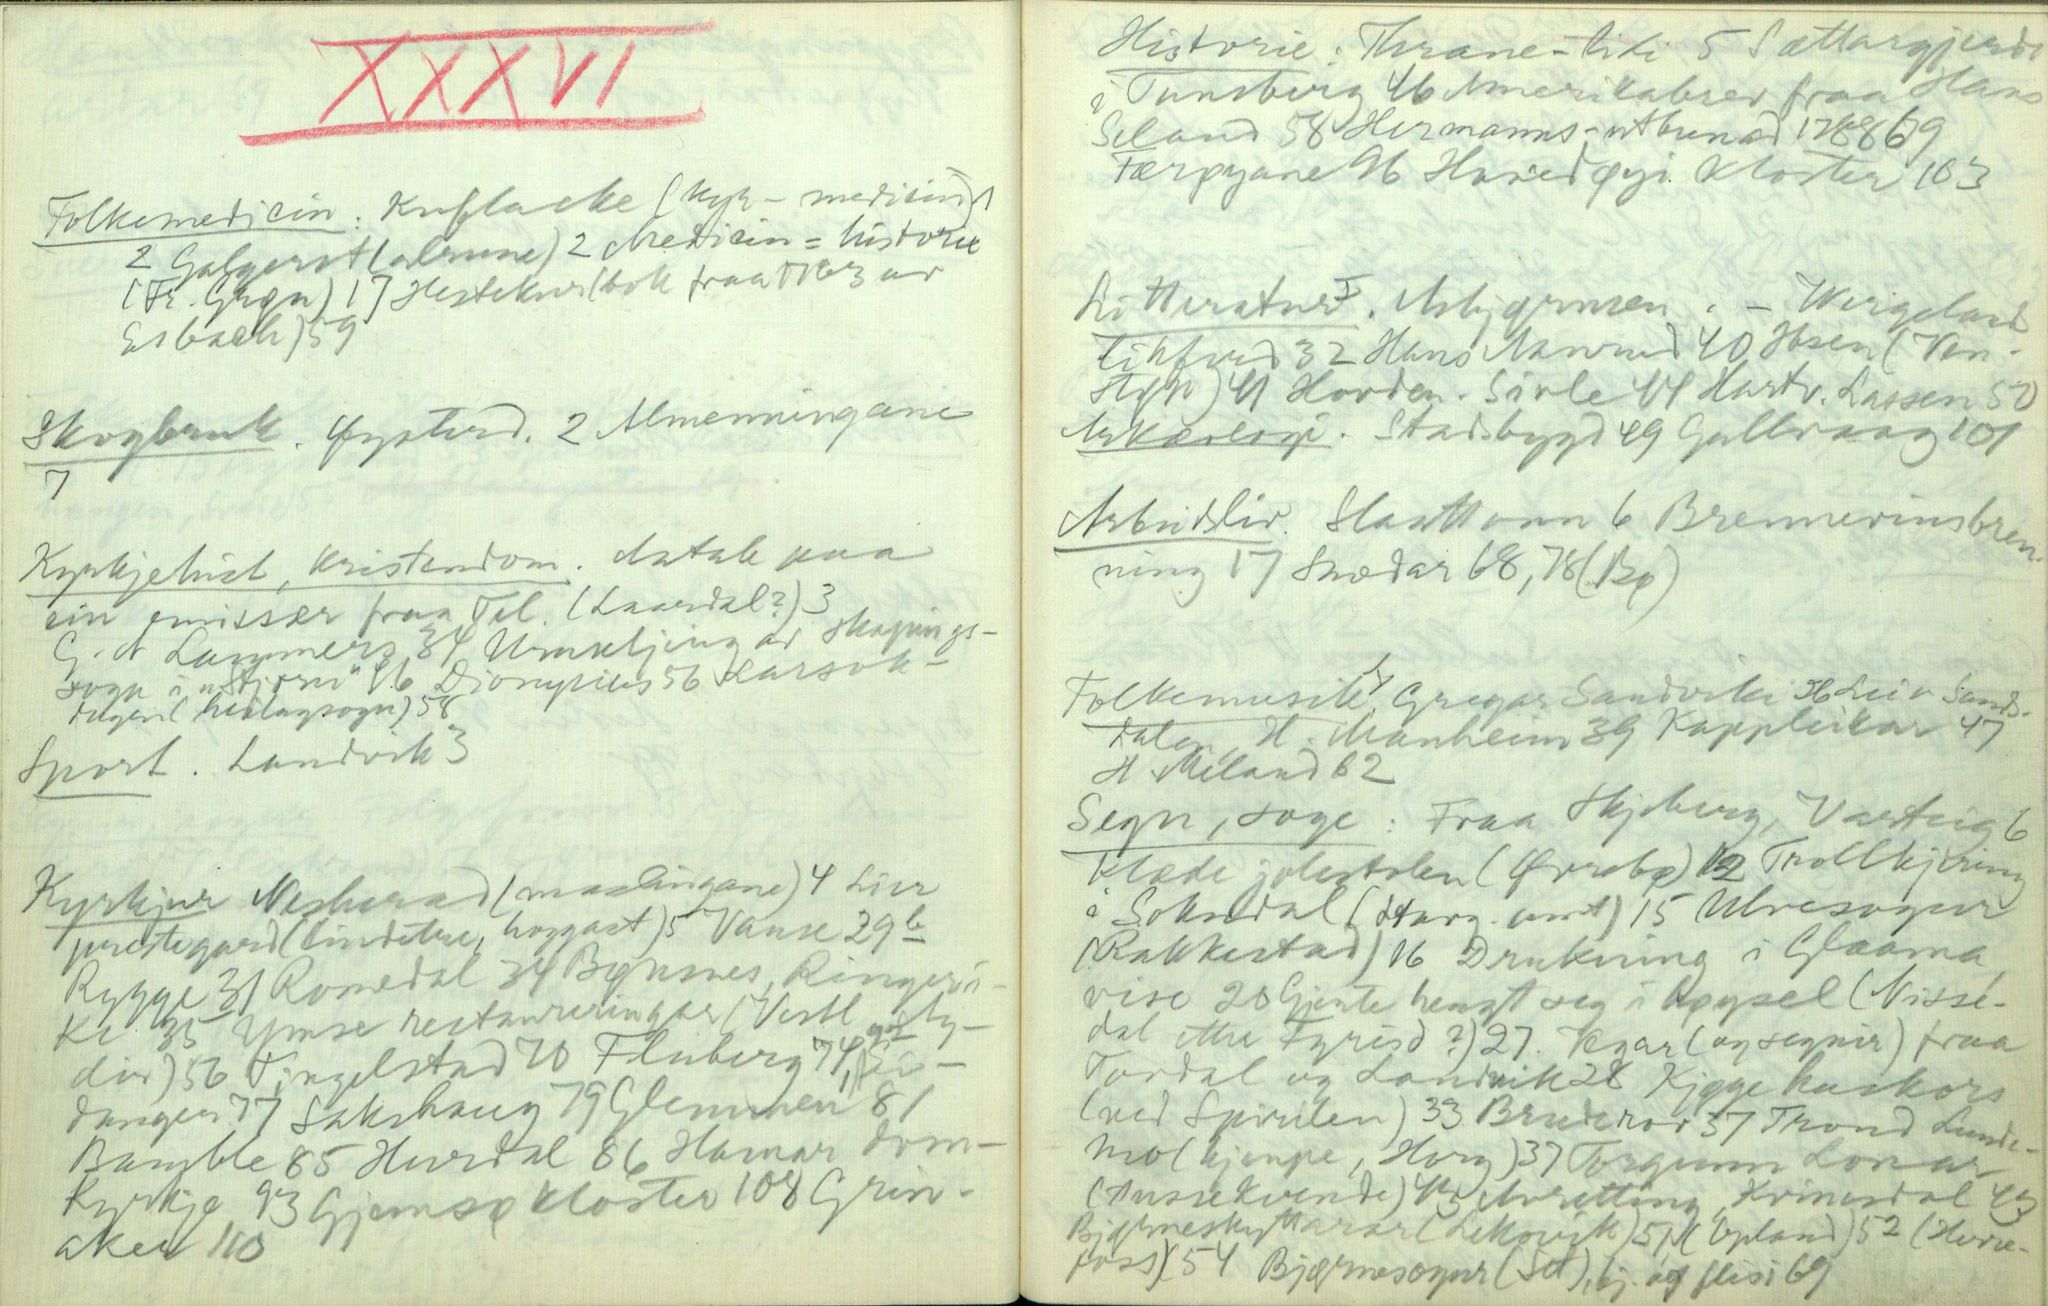 XXXVI
Folkemedicin. Kufladke (kyr-medicin)1
2 Galgerot (alrune) 2 Medicin=historie
(Fr. Grøn) 17 Hestekur(bok fraa 1763 av
Esbach) 59
Skogbruk. Fyresd. 2 Almenningane
7
Kyrkjehist, kristendom. Avtale paa
ein emissær fraa Tel. (Laardal?) 3
G. A Lammers 34 Umskjing av skapings-
sogn i "Stjørni" 46 Dionysius 56 Larsok-
helgen (heilagsogn) 58
Sport. Landvik 3
Kyrkjur Nesherad (maalingane) 4 Lier
prestegard (lindetre, hoggast) 5 Vanse 29b
Rygge 31 Romedal 34 Bønsnes, Ringeri-
ke 35 Ymse restaureringar (Vestl og Ly-
dir) 56 Tingelstad 70 Fluberg 74, Ei-
dangen 77 Sakshaug 79 Glemmen 81
Bamble 85 Hurdal 86 Hamar dom-
kyrkje 93 Gjemsø kloster 108 Grin-
aker 110
Historie: Thrane-tiki 5 Sættargjerdi
i Tunsberg 46 Amerikabrev fraa Hans
Seland 58 Hermanns- 1788 69
Færøyane 96 Hovedøyi. Kloster 103
Litteratur. Asbjørnsen. - Wergeland
32 Hans Aanrud 40, Ibsen (Ven-
støp) 41 Hovden. Sivle 44 Hartv. Lassen 50
Arkæologi. Stadsbygd 49 Gullvaag 101
Arbeidsliv. Slaattonn 6 Brennevinsbren-
ning 17 Snedar 68, 78 (Bø)
Folkemusik, Gregar Sandviki H Leiv Sands-
dalen, H. Manheim 39 Kappleikar 47
H Meland 62
Segn, soge: Fraa Skjeberg, Varteig 6
Klæde jolestolen (Ørrebø) 12 Trollkjering
i Sokndal (Stav. amt) 15 Ulvesogur
(Rakkestad) 16 Drukning i Glaama,
vise 20 Gjente hengt seg i høysel (Nisse-
dal ell Fyresd ?) 27. Vegar (og segnir) fraa
Tørdal og Landvik 28 Kjøge huskors
(ved Spirilen) 33 Bruderov 37 Trond Lunde-
mo (kjempe, Horg) 37 Torgunn Lonar
(Hussekvende) 43 Avretting, Kvinesdal 43
Bjørneskyttarar (Lekovik) 51, (Opland) 52 (Herre-
foss) 54 Bjørnesogur (Set), bj. og flisi 69